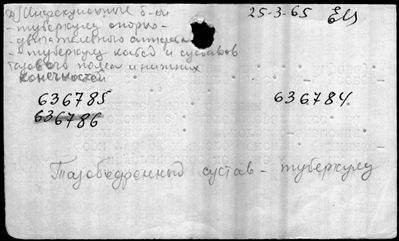 д) Инфекционные б-ни
25-3-65
- туберкулез опорно-
двигательного аппарата
- туберкулез костей и суставов
тазового пояса и нижних
конечностей
636785 636784
636786
Тазобедренный сустав - туберкулез